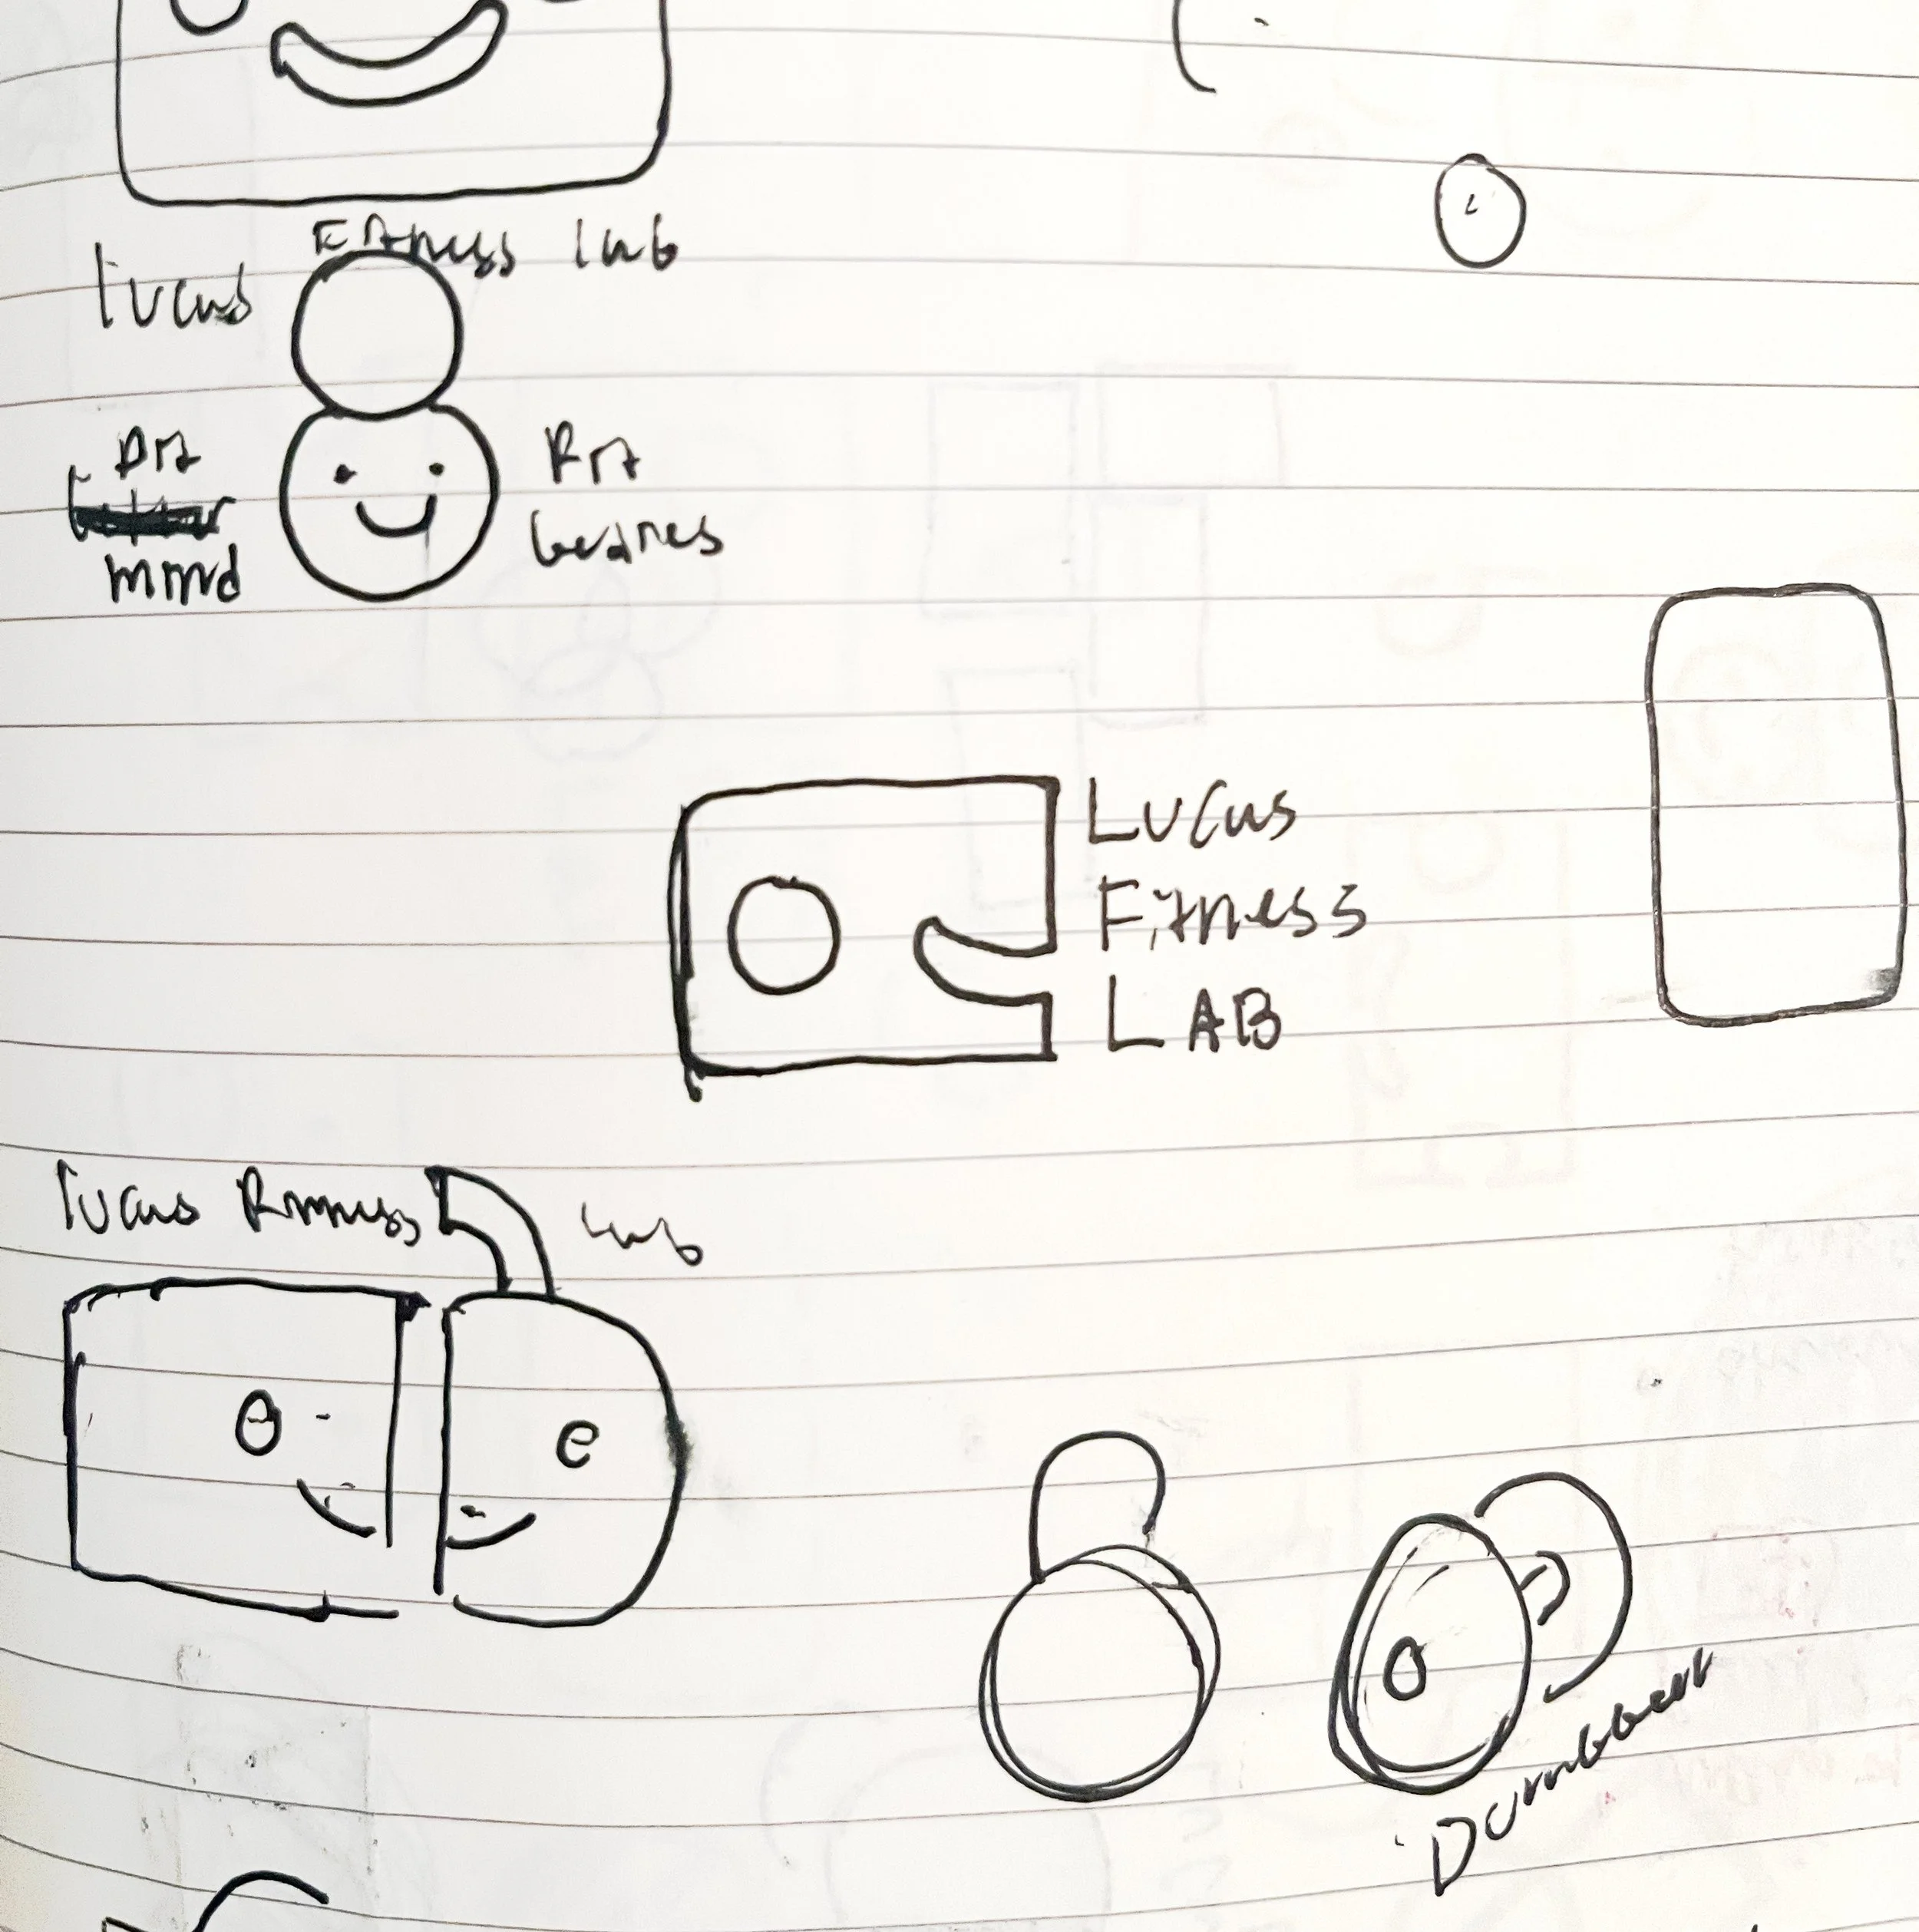 Fitness lab
lucas
Fit
mind
Fit
bodies
Lucas
Fitness
LAB
lucas Fitness lab
Dumbbell